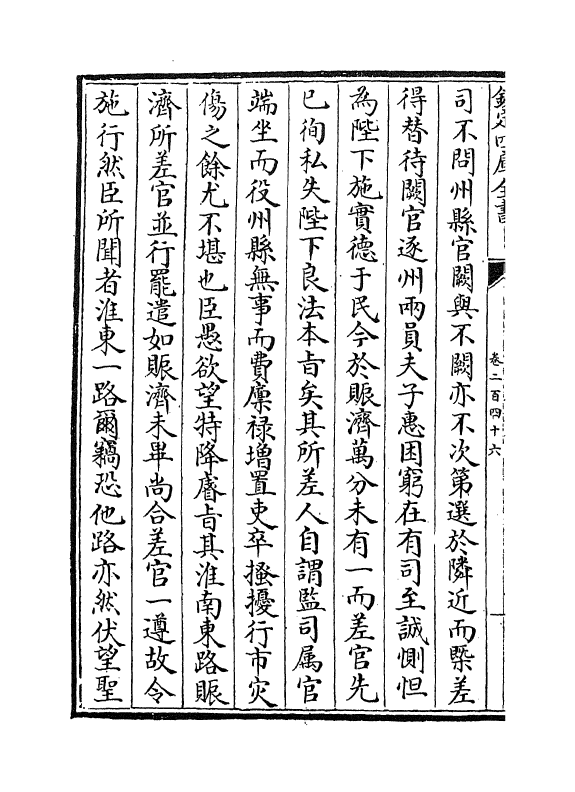 欽定四庫全書
卷二百四十六
司不問州縣官闕與不闕亦不次第選於隣近而槩差
得替待闕官逐州兩員夫子惠困窮在有司至誠惻怛
為陛下施實德于民今於賑濟萬分未有一而差官先
已徇私失陛下良法本旨矣其所差人自謂監司属官
端坐而役州縣無事而費廩禄增置吏卒搔擾行市災
傷之餘尤不堪也臣愚欲望特降睿旨其淮南東路賑
濟所差官並行罷遣如賑濟未畢尚合差官一遵故令
施行然臣所聞者淮東一路爾竊恐他路亦然伏望聖